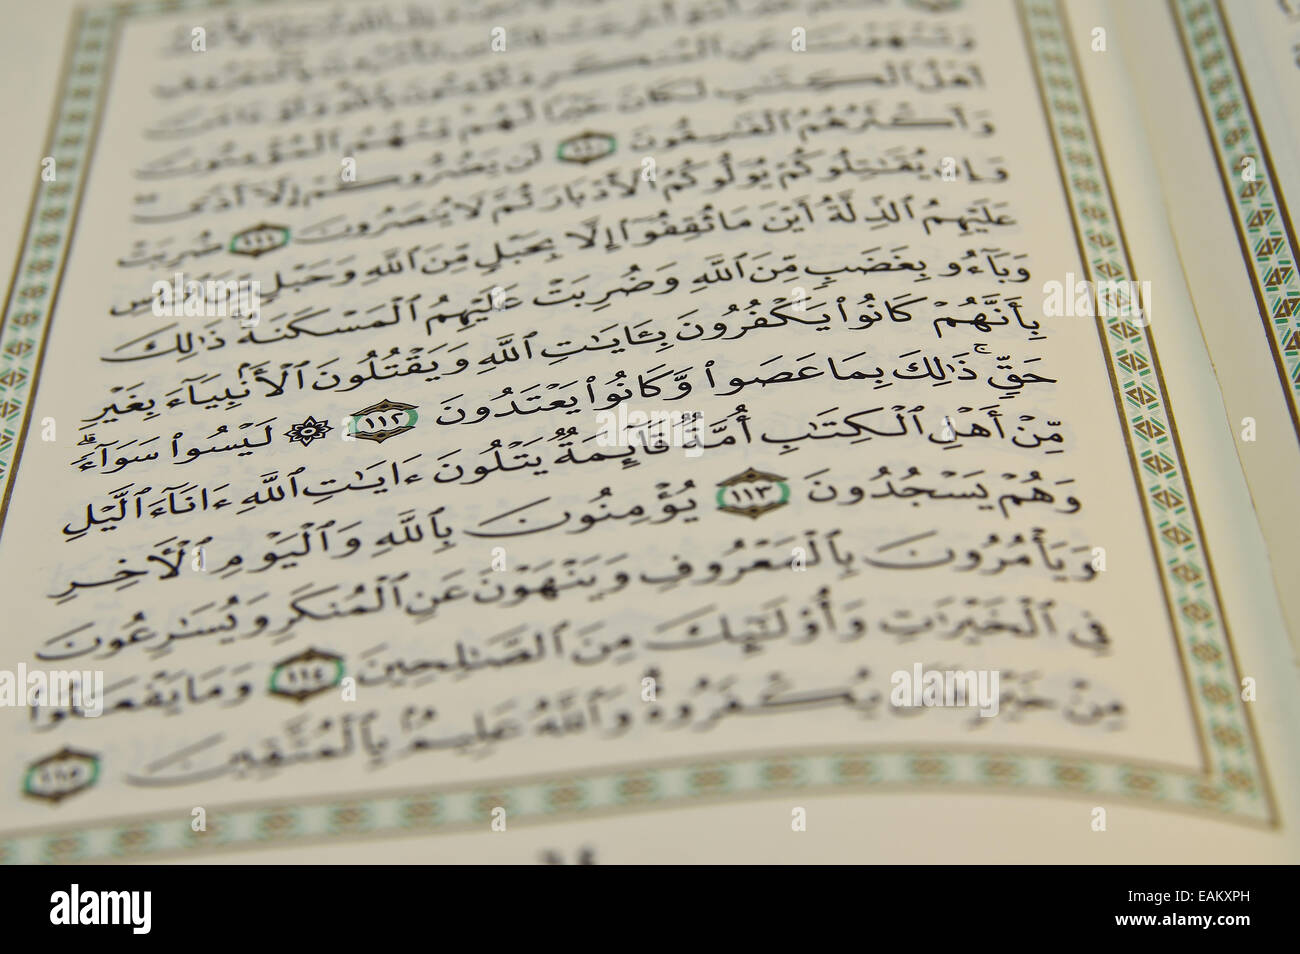 وَتَنْهَوْنَ عَنِ ٱلْمُنكَرِ وَتُؤْمِنُونَ بِٱللَّهِ وَلَوْ ءَامَنَ
أَهْلُ ٱلْكِتَٰبِ لَكَانَ خَيْرًا لَّهُم مِّنْهُمُ ٱلْمُؤْمِنُونَ
وَأَكْثَرُهُمُ ٱلْفَٰسِقُونَ ١١٠ لَن يَضُرُّوكُمْ إِلَّآ أَذًى
وَإِن يُقَٰتِلُوكُمْ يُوَلُّوكُمُ ٱلْأَدْبَارَ ثُمَّ لَا يُنصَرُونَ ١١١ ضُرِبَتْ
عَلَيْهِمُ ٱلذِّلَّةُ أَيْنَ مَا ثُقِفُوٓا۟ إِلَّا بِحَبْلٍ مِّنَ ٱللَّهِ وَحَبْلٍ مِّنَ ٱلنَّاسِ
وَبَآءُو بِغَضَبٍ مِّنَ ٱللَّهِ وَضُرِبَتْ عَلَيْهِمُ ٱلْمَسْكَنَةُ ۚ ذَٰلِكَ
بِأَنَّهُمْ كَانُوا۟ يَكْفُرُونَ بِـَٔايَٰتِ ٱللَّهِ وَيَقْتُلُونَ ٱلْأَنۢبِيَآءَ بِغَيْرِ
حَقٍّ ۚ ذَٰلِكَ بِمَا عَصَوا۟ وَّكَانُوا۟ يَعْتَدُونَ ١١٢ ۞ لَيْسُوا۟ سَوَآءً ۗ
مِّنْ أَهْلِ ٱلْكِتَٰبِ أُمَّةٌ قَآئِمَةٌ يَتْلُونَ ءَايَٰتِ ٱللَّهِ ءَانَآءَ ٱلَّيْلِ
وَهُمْ يَسْجُدُونَ ١١٣ يُؤْمِنُونَ بِٱللَّهِ وَٱلْيَوْمِ ٱلْءَاخِرِ
وَيَأْمُرُونَ بِٱلْمَعْرُوفِ وَيَنْهَوْنَ عَنِ ٱلْمُنكَرِ وَيُسَٰرِعُونَ
فِى ٱلْخَيْرَٰتِ وَأُو۟لَٰٓئِكَ مِنَ ٱلصَّٰلِحِينَ ١١٤ وَمَا يَفْعَلُوا۟
مِنْ خَيْرٍ فَلَن يُكْفَرُوهُ وَٱللَّهُ عَلِيمٌۢ بِٱلْمُتَّقِينَ ١١٥
٦٤
alamy
Image ID: EAKXPH
www.alamy.com